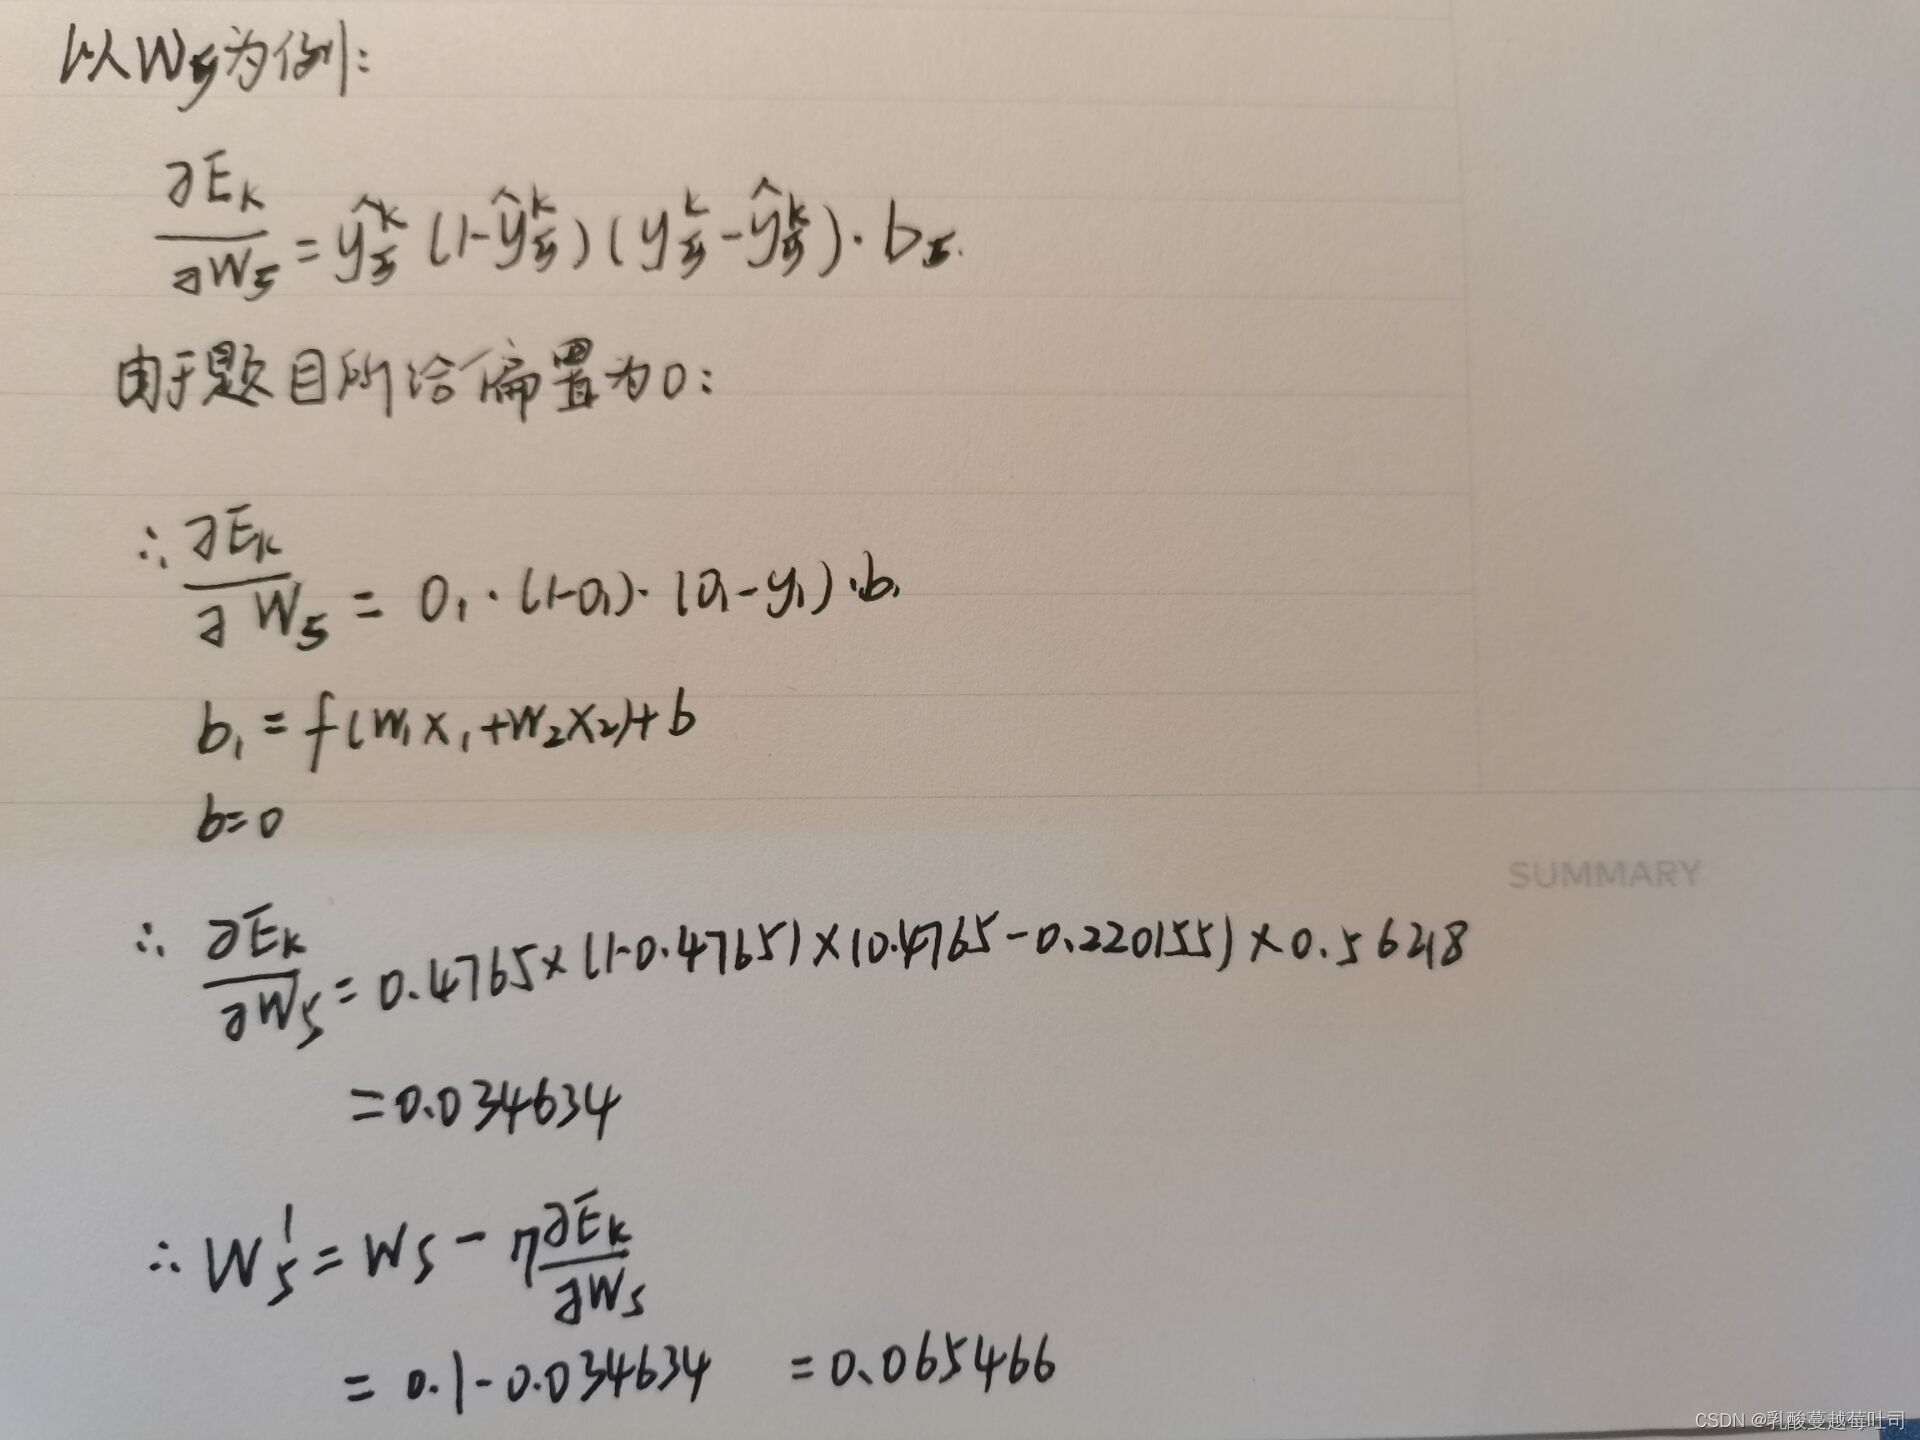 以W5为例:
∂Ek/∂W5 = ŷ5^k (1-ŷ5^k)(y5^k-ŷ5^k)·b5.
由于题目所给偏置为0:
∴ ∂Ek/∂W5 = O1·(1-O1)·(O1-y1)·b1
b1 = f(W1X1+W2X2)+b
b=0
SUMMARY
∴ ∂Ek/∂W5 = 0.4765×(1-0.4765)×(0.4765-0.220155)×0.5628
=0.034634
∴ W5^1 = W5 - η ∂Ek/∂W5
= 0.1-0.034634 = 0.065466
CSDN @乳酸蔓越莓吐司